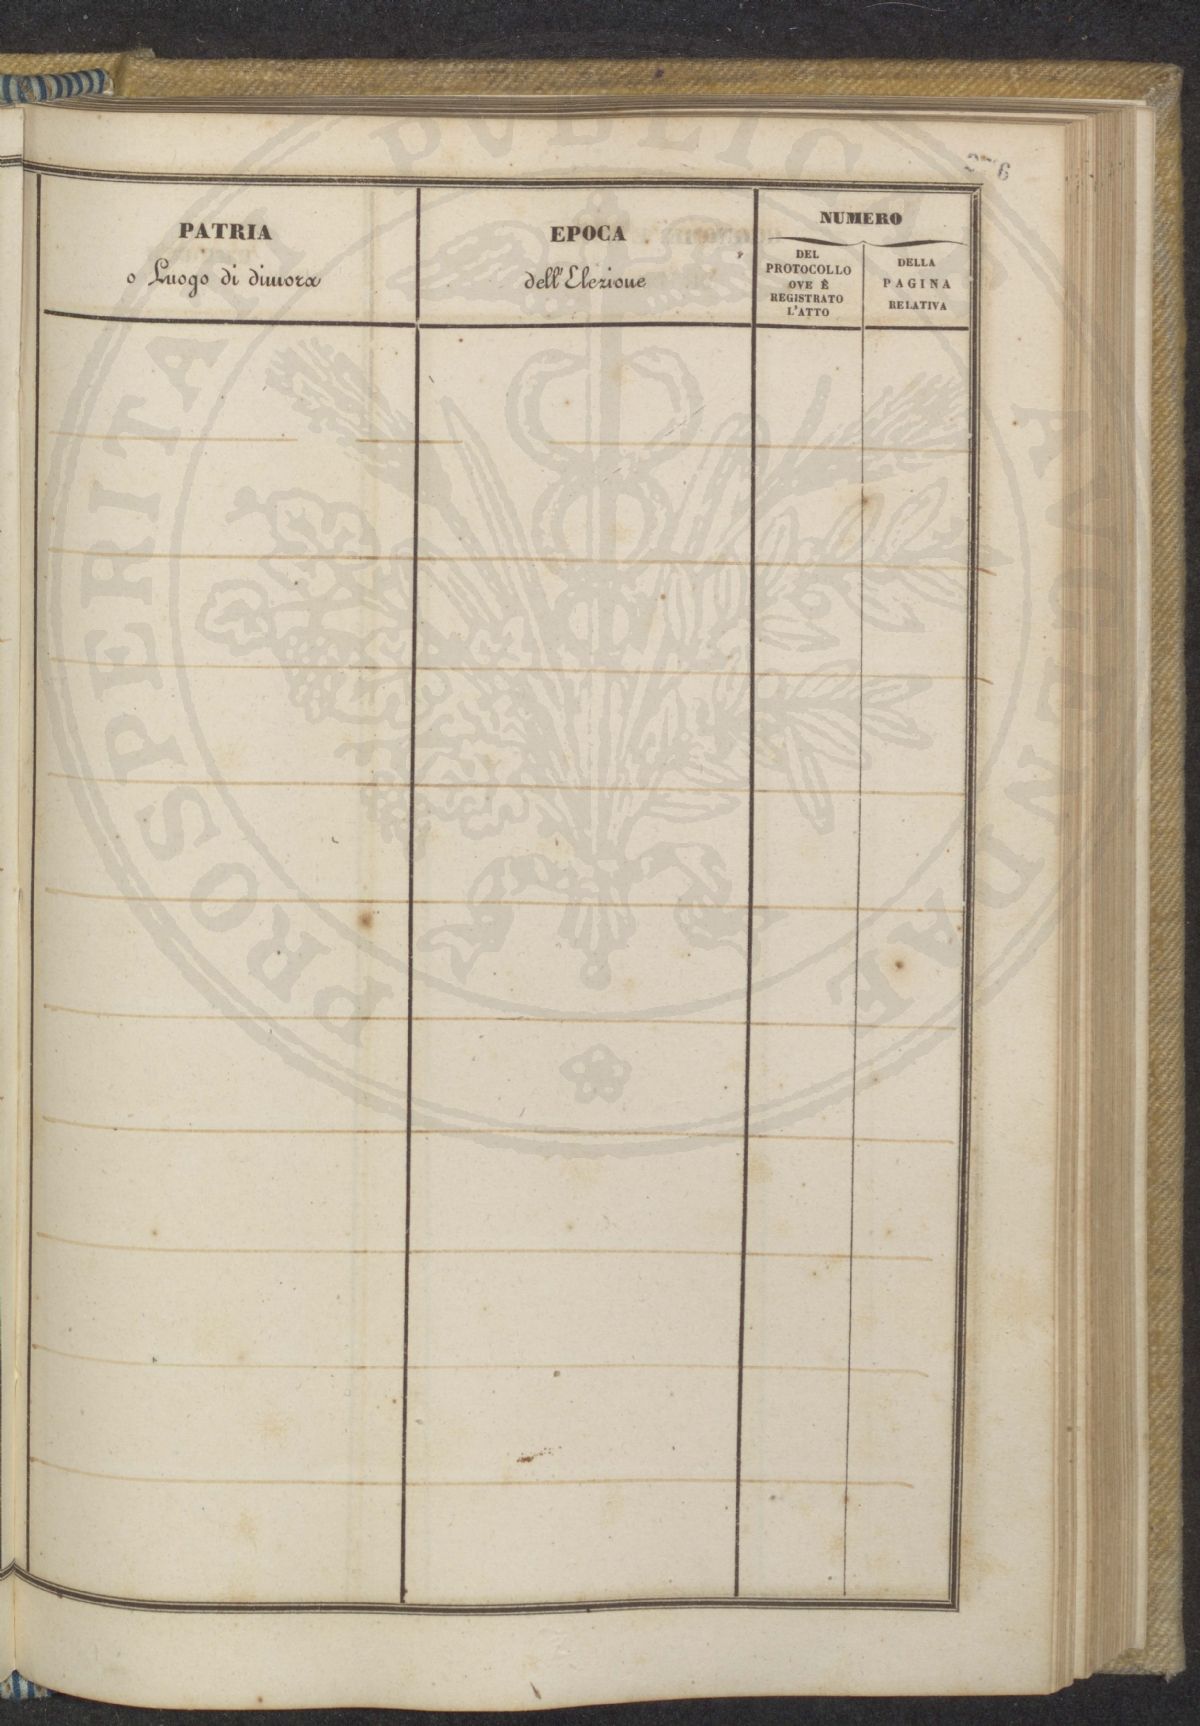 276
PATRIA
o Luogo di dimora
EPOCA
dell'Elezione
NUMERO
DEL
PROTOCOLLO
OVE È
REGISTRATO
L'ATTO
DELLA
PAGINA
RELATIVA
PROSPERITATI PVBLICAE AVGENDAE